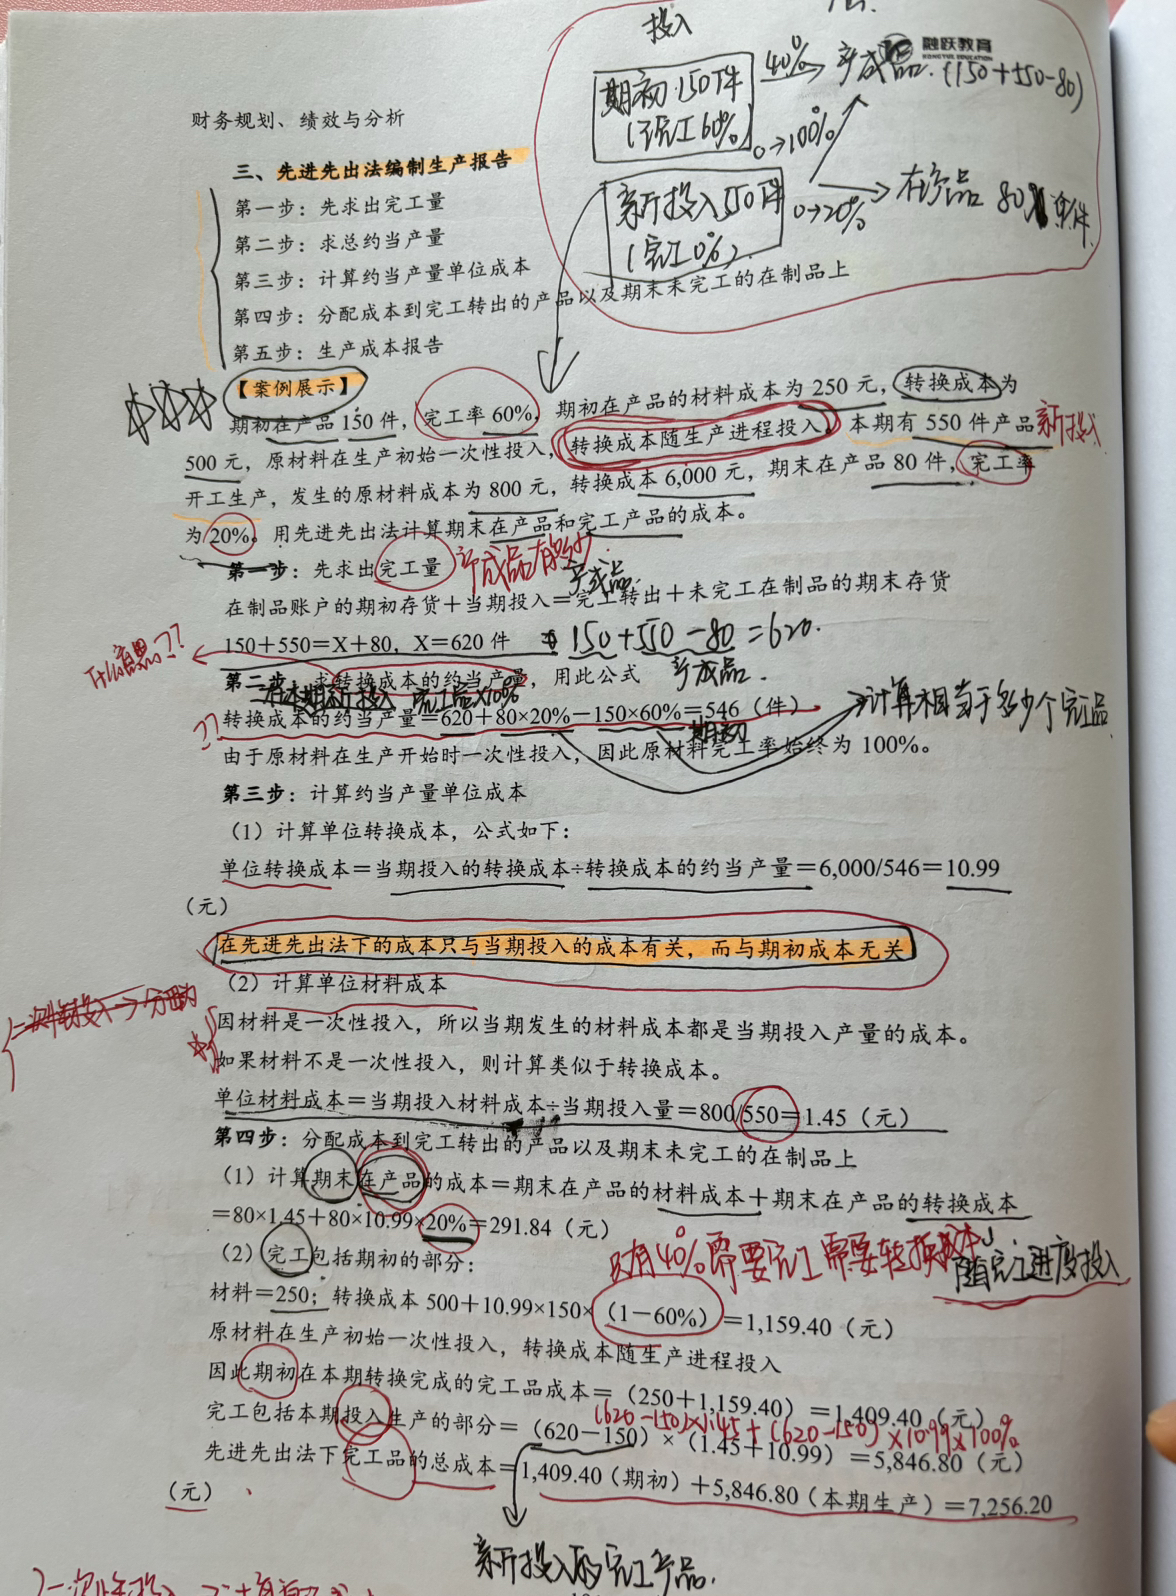 投入
融跃教育
RONGYUE EDUCATION
期初150件
(完工60%)
40% → 产成品.(150+550-80)
0→100%
新投入550件
(完工0%)
0→20% 在产品 80件
财务规划、绩效与分析
三、先进先出法编制生产报告
第一步：先求出完工量
第二步：求总约当产量
第三步：计算约当产量单位成本
第四步：分配成本到完工转出的产品以及期末未完工的在制品上
第五步：生产成本报告
【案例展示】
期初在产品 150 件，完工率 60%，期初在产品的材料成本为 250 元，转换成本为
500 元，原材料在生产初始一次性投入，转换成本随生产进程投入。本期有 550 件产品 新投入
开工生产，发生的原材料成本为 800 元，转换成本 6,000 元，期末在产品 80 件，完工率
为 20%。用先进先出法计算期末在产品和完工产品的成本。
第一步：先求出完工量 产成品有多少
产成品.
在制品账户的期初存货＋当期投入＝完工转出＋未完工在制品的期末存货
150＋550＝X＋80，X＝620 件 150+550-80=620.
什么意思??
第二步：求转换成本的约当产量，用此公式 产成品.
本期新投入 完工品×100%
??
转换成本的约当产量＝620＋80×20%－150×60%＝546（件） 计算相当于多少个完工品
期初
由于原材料在生产开始时一次性投入，因此原材料完工率始终为 100%。
第三步：计算约当产量单位成本
（1）计算单位转换成本，公式如下：
单位转换成本＝当期投入的转换成本÷转换成本的约当产量＝6,000/546＝10.99
（元）
在先进先出法下的成本只与当期投入的成本有关，而与期初成本无关
（2）计算单位材料成本
因材料是一次性投入，所以当期发生的材料成本都是当期投入产量的成本。
如果材料不是一次性投入，则计算类似于转换成本。
单位材料成本＝当期投入材料成本÷当期投入量＝800/550＝1.45（元）
第四步：分配成本到完工转出的产品以及期末未完工的在制品上
（1）计算期末在产品的成本＝期末在产品的材料成本＋期末在产品的转换成本
＝80×1.45＋80×10.99×20%＝291.84（元）
只有40%需要完工需要转换成本
随完工进度投入
（2）完工包括期初的部分：
材料＝250；转换成本 500＋10.99×150×（1－60%）＝1,159.40（元）
原材料在生产初始一次性投入，转换成本随生产进程投入
因此期初在本期转换完成的完工品成本＝（250＋1,159.40）＝1,409.40（元）
(620-150)×1.45+(620-150)×10.99×100%
完工包括本期投入生产的部分＝（620－150）×（1.45＋10.99）＝5,846.80（元）
先进先出法下完工品的总成本＝1,409.40（期初）＋5,846.80（本期生产）＝7,256.20
（元）
新投入的完工产品.